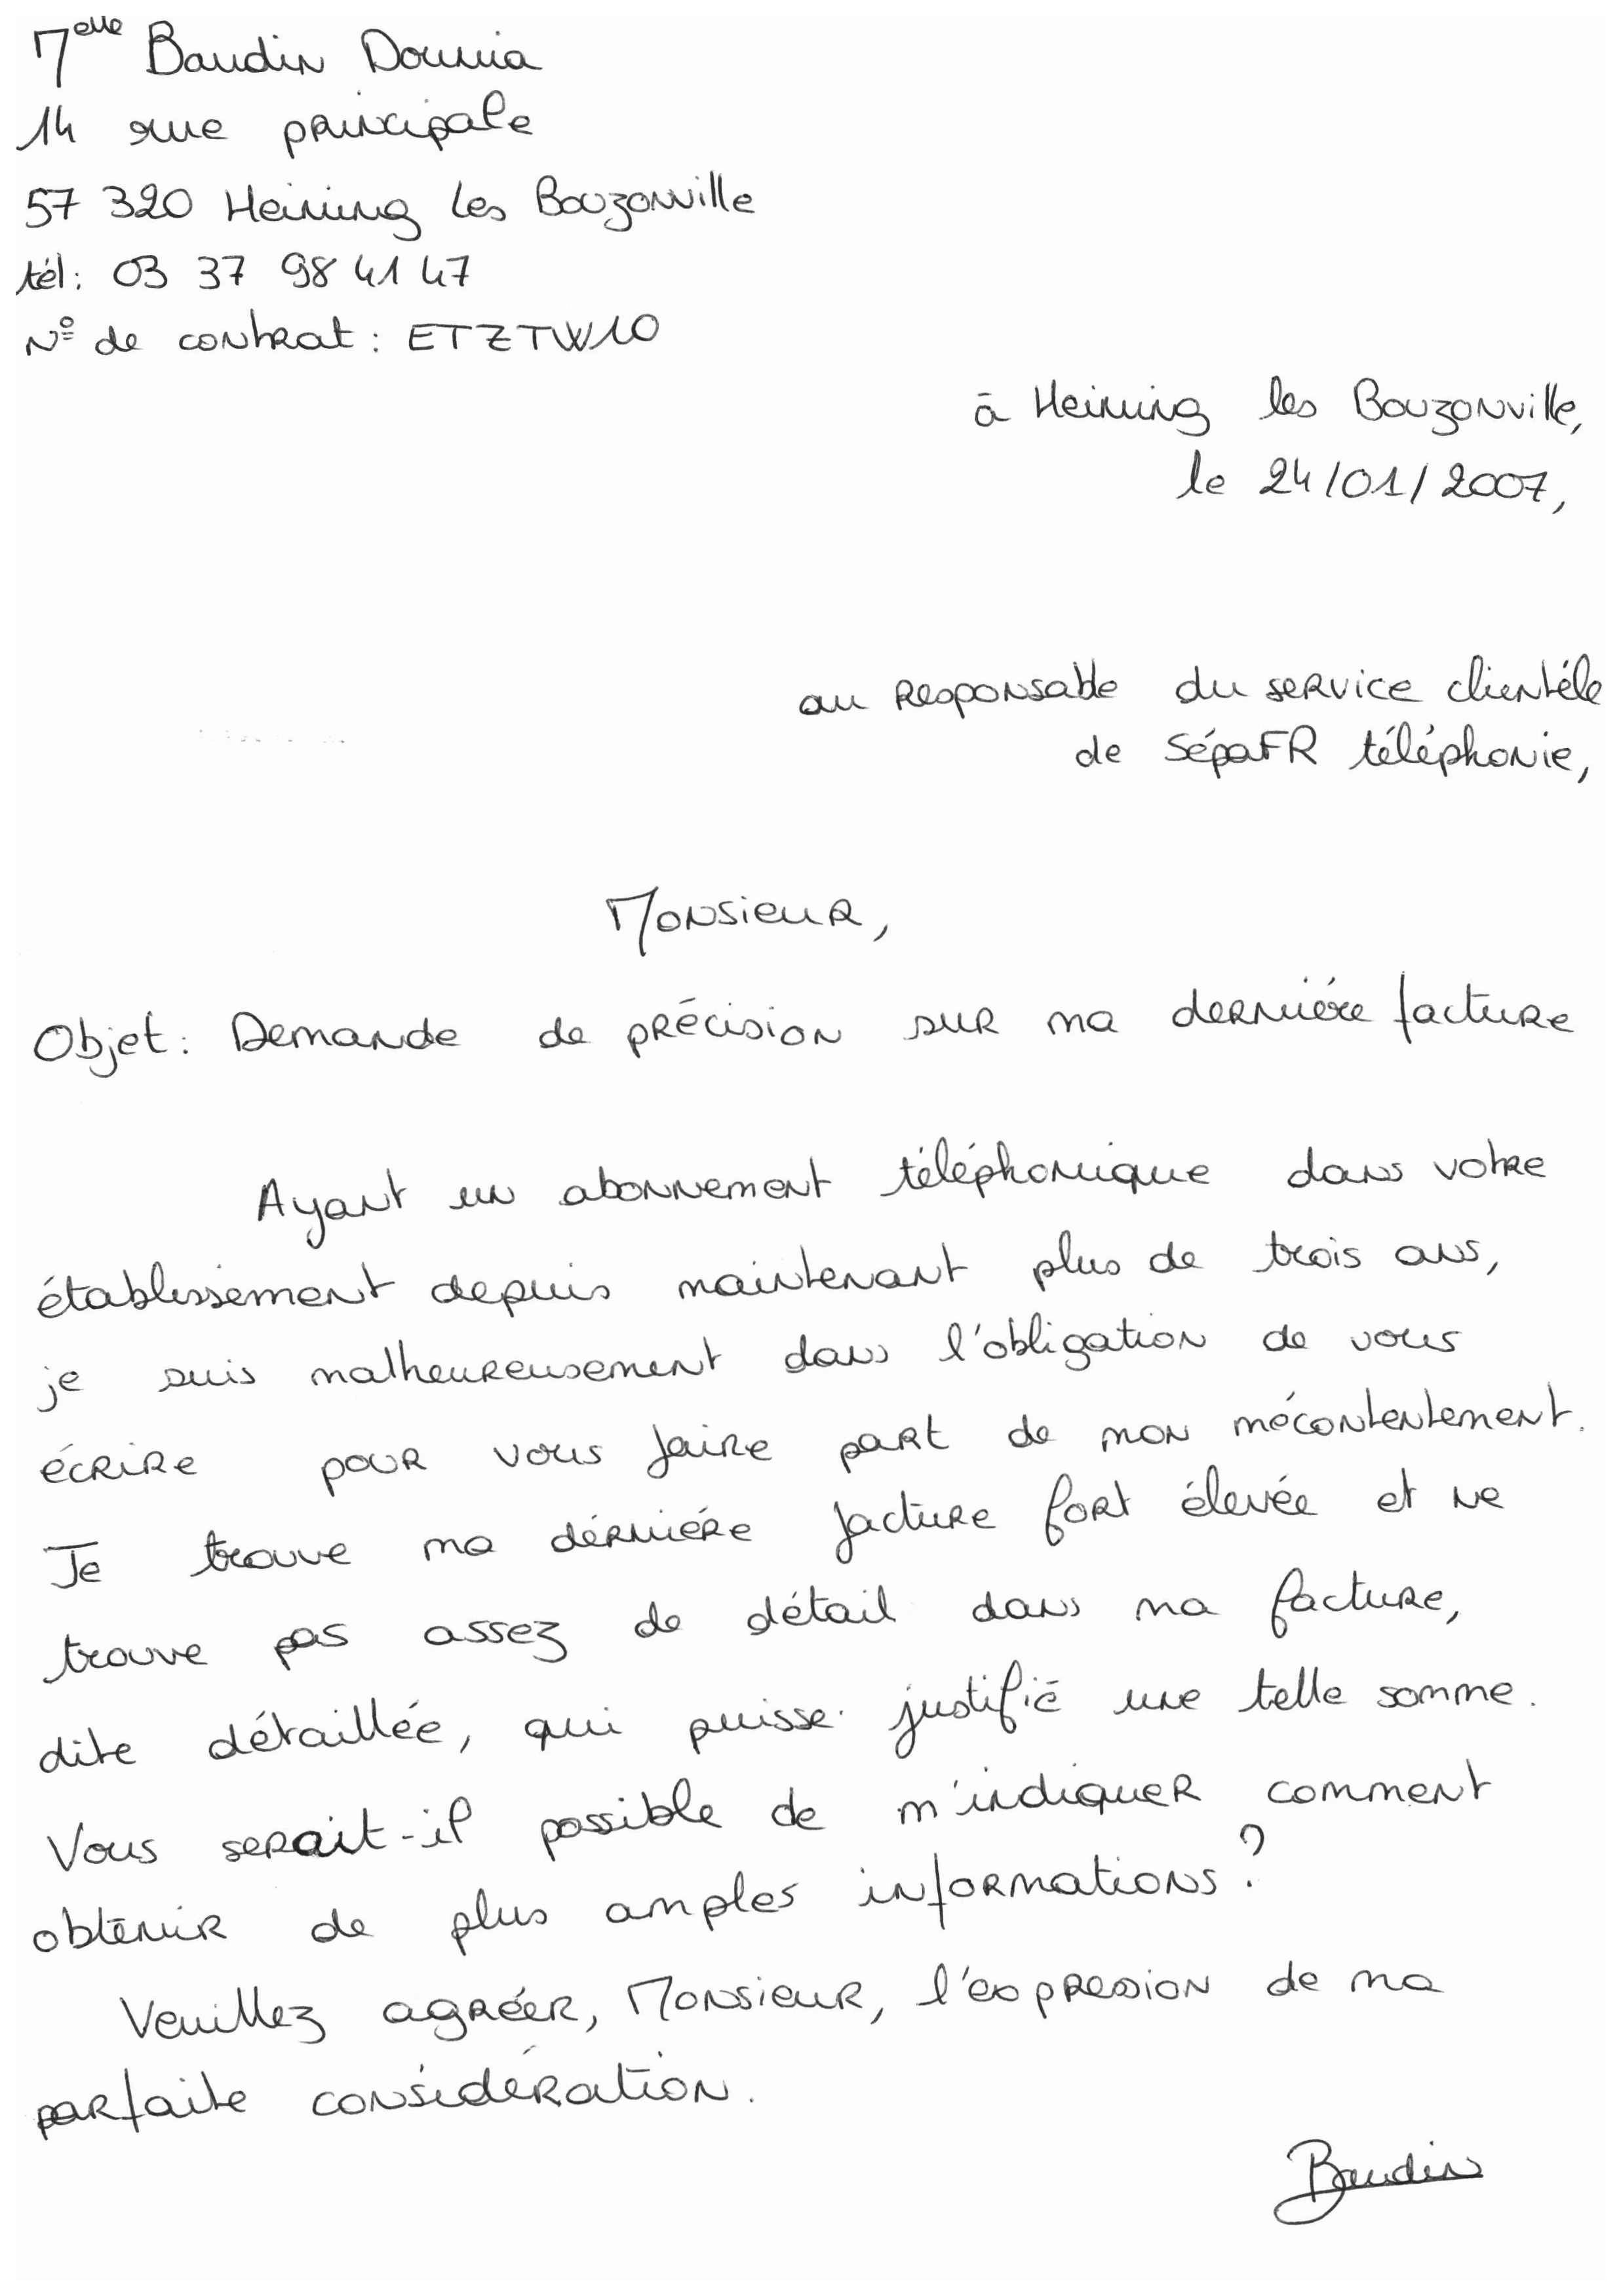 Melle Baudin Dounia
14 rue principale
57 320 Heining les Bouzonville
tél: 03 37 98 41 47
N° de contrat : ETZTW10
à Heining les Bouzonville,
le 24/01/2007,
au Responsable du service clientéle
de SépaFR téléphonie,
Monsieur,
Objet: Demande de précision sur ma derniére facture
Ayant un abonnement téléphonique dans votre
établissement depuis maintenant plus de trois ans,
je suis malheureusement dans l'obligation de vous
écrire pour vous faire part de mon mécontentement.
Je trouve ma dérniére facture fort élevée et ne
trouve pas assez de détail dans ma facture,
dite détaillée, qui puisse justifié une telle somme.
Vous serait-il possible de m'indiquer comment
obtenir de plus amples informations ?
Veuillez agréer, Monsieur, l'expression de ma
parfaite considération.
Baudin